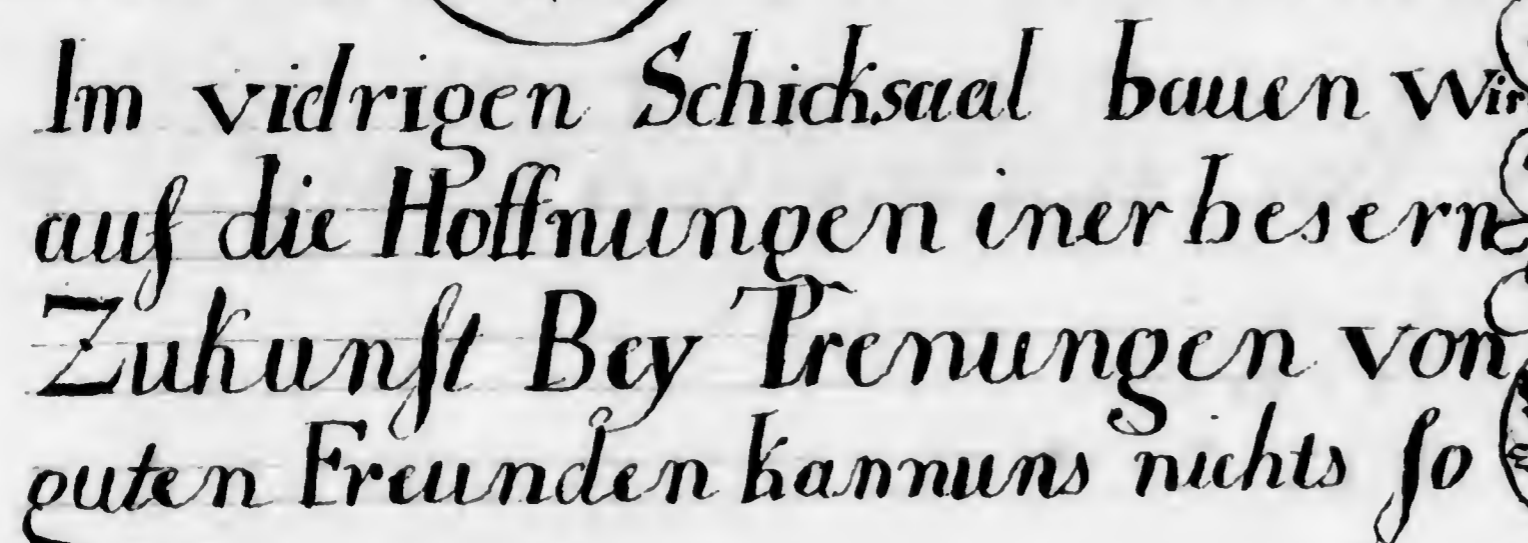 Im vidrigen Schicksaal bauen Wir
auf die Hoffnungen iner besern
Zukunft Bey Trenungen von
guten Freunden kannuns nichts ſo